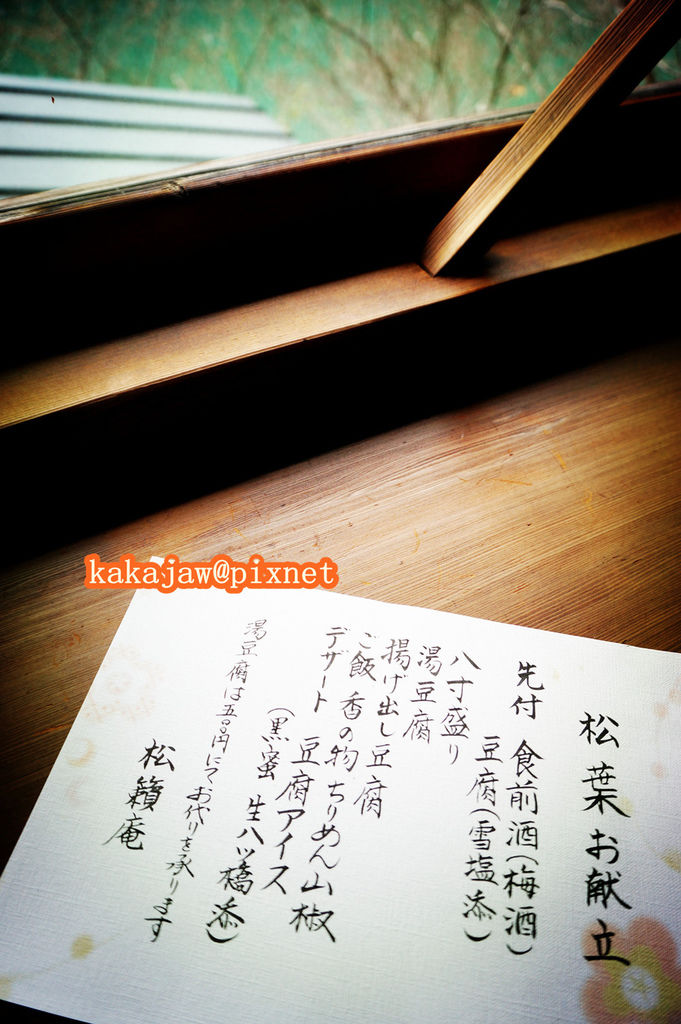 kakajaw@pixnet
松葉お献立
先付 食前酒(梅酒)
豆腐(雪塩添)
八寸盛り
湯豆腐
揚げ出し豆腐
ご飯 香の物 ちりめん山椒
デザート 豆腐アイス
(黒蜜 生八ツ橋添)
湯豆腐は五百円にてお代りを承ります
松籟庵